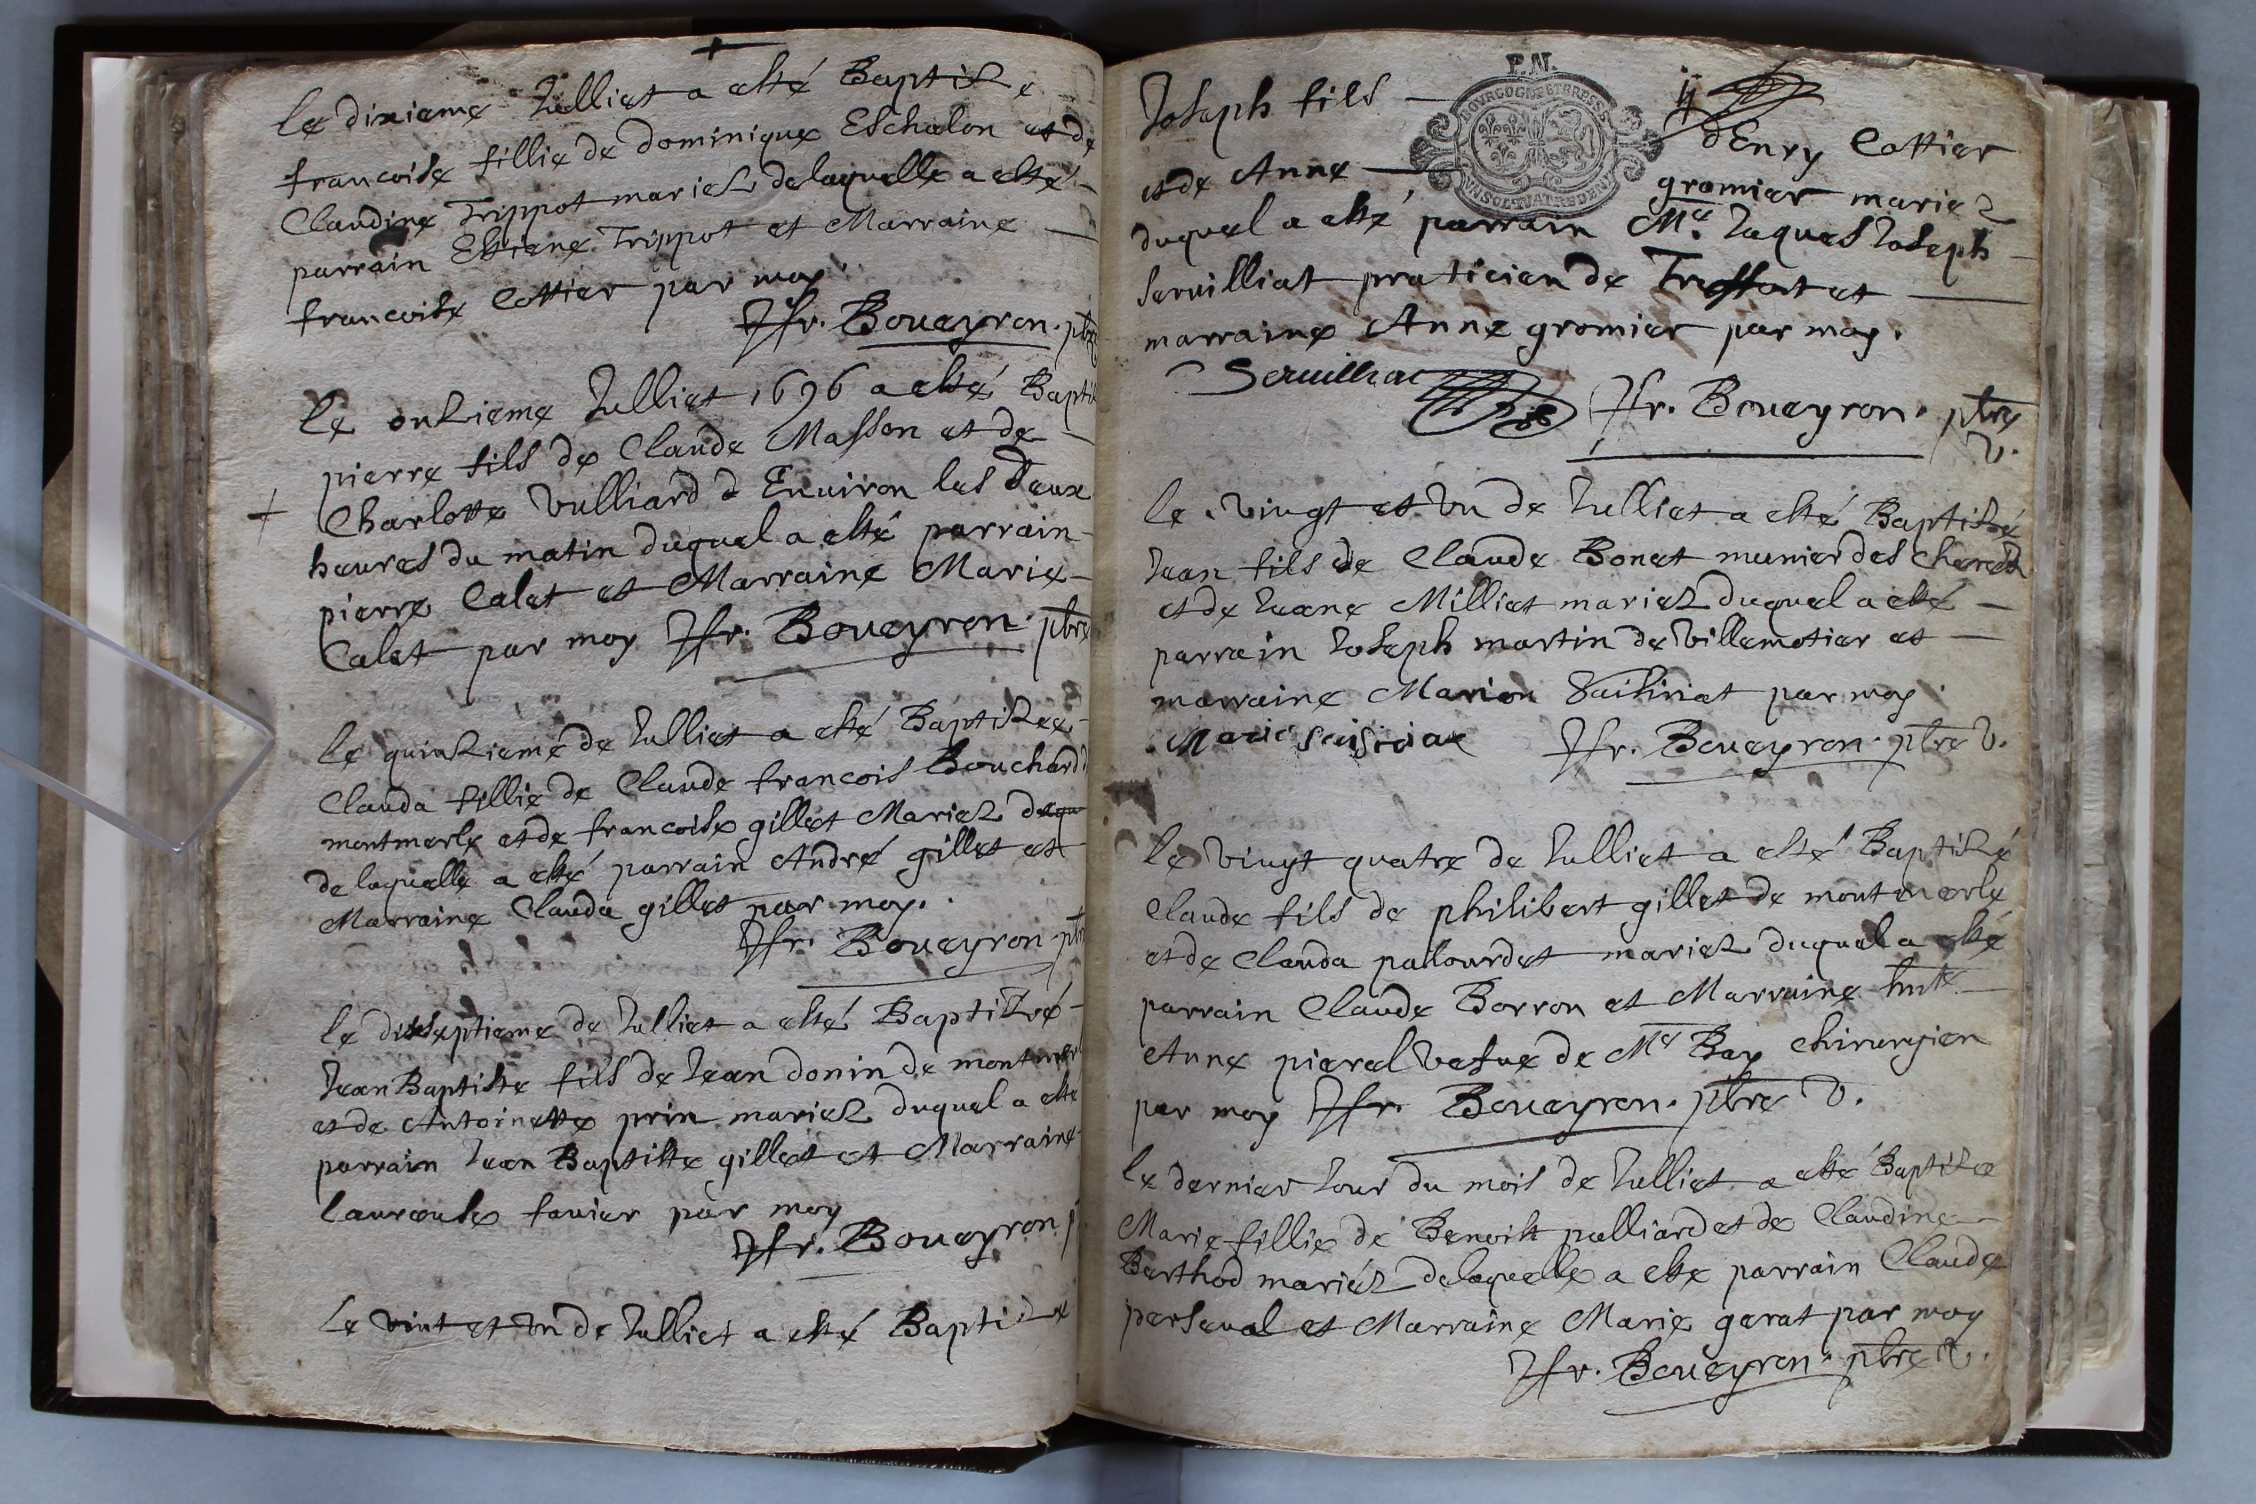 le dixieme Julliet a esté Baptisée
francoise fillie de dominique Eschalon et de
Claudine Trippot mariez delaquelle a esté
parrain Estiene Trippot et Marraine
francoise Cottier par moy
Jfr. Boueyron. ptre
le onzieme Julliet 1696 a esté Bapti
pierre fils de Claude Masson et de
Charlotte Vulliard d Environ les deux
heures du matin duquel a esté parrain
pierre Calet et Marraine Marie
Calet par moy Jfr. Boueyron. ptre
le quinzieme de Julliet a esté Baptizee
Clauda fillie de Claude francois Bouchard d
montmerle et de francoise gillet Mariez dequ
de laquelle a esté parrain André gillet et
Marraine Clauda gillet par moy.
Jfr. Boueyron ptr
le disseptieme de Julliet a esté Baptizé
Jean Baptiste fils de Jean donin de montmerl
et de Antoinette prin mariez duquel a esté
parrain Jean Baptiste gillet et Marraine
laurense favier par moy
Jfr. Boueyron p
le vint et un de Julliet a esté Baptizé
P.N.
BOURGOGNE ET BRESS
UN SOL QUATRE DENI
Joseph fils
dEnry Cottier
et de Anne
gromier mariez
duquel a esté parrain Me. Jaques Joseph
Servilliat praticien de Treffort et
marraine Anne gromier par moy.
Servilliat
Jfr. Boueyron. ptre
V.
le vingt et un de Julliet a esté Baptizé
Jean fils de Claude Bonet munier des
et de Jeane Milliet mariez duquel a esté
parrain Joseph martin de Villemotier et
marraine Marion par moy.
Marie
Jfr. Boueyron. ptre V.
le vingt quatre de Julliet a esté Baptizé
Claude fils de philibert gillet de montmerle
et de Clauda pallourdet mariez duquel a esté
parrain Claude Borron et Marraine
Anne pieral vefue de Me Bay chirurgien
par moy Jfr. Boueyron. ptre V.
le dernier Jour du mois de Julliet a esté Baptizé
Marie fillie de Benoist palliard et de Claudine
Berthod mariéz delaquelle a esté parrain Claude
perseval et Marraine Marie garat par moy
Jfr. Boueyron. ptre V.